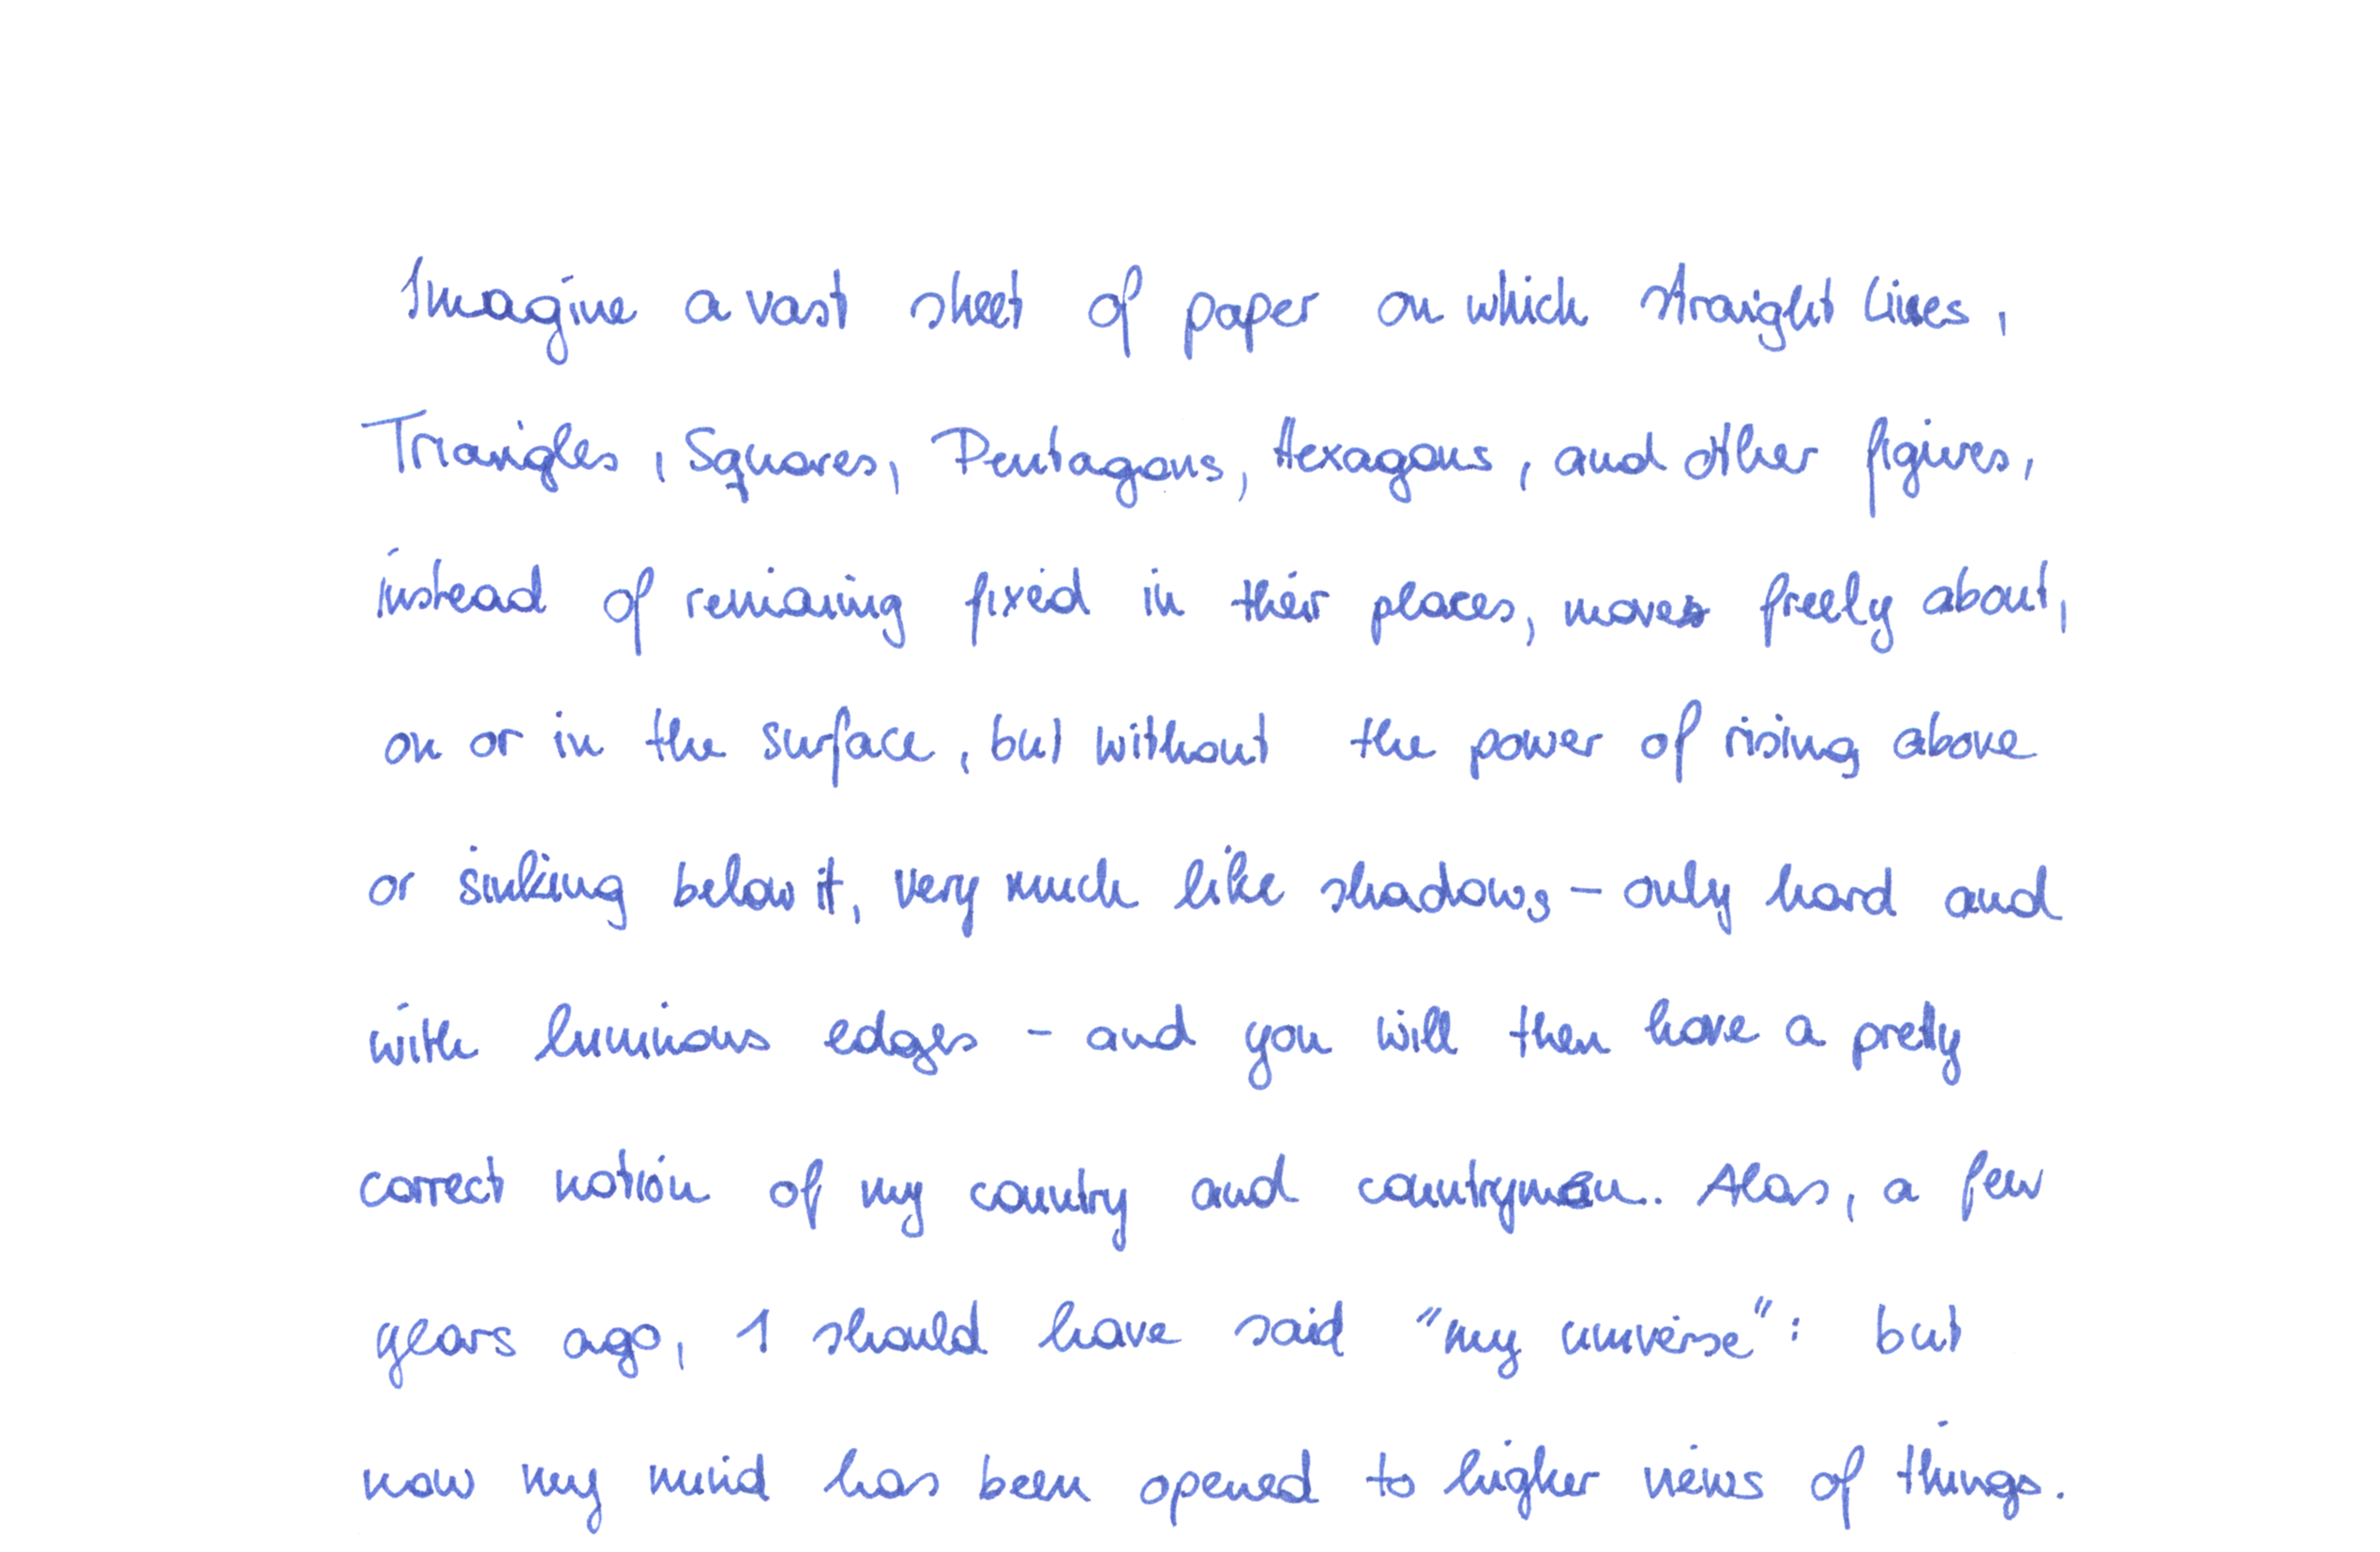 Imagine a vast sheet of paper on which straight Lines,
Triangles, Squares, Pentagons, Hexagons, and other figures,
instead of remianing fixed in their places, moves freely about,
on or in the surface, but without the power of rising above
or sinking below it, very much like shadows – only hard and
with luminous edges – and you will then have a pretty
correct notion of my country and countrymen. Alas, a few
years ago, I should have said "my universe": but
now my mind has been opened to higher views of things.